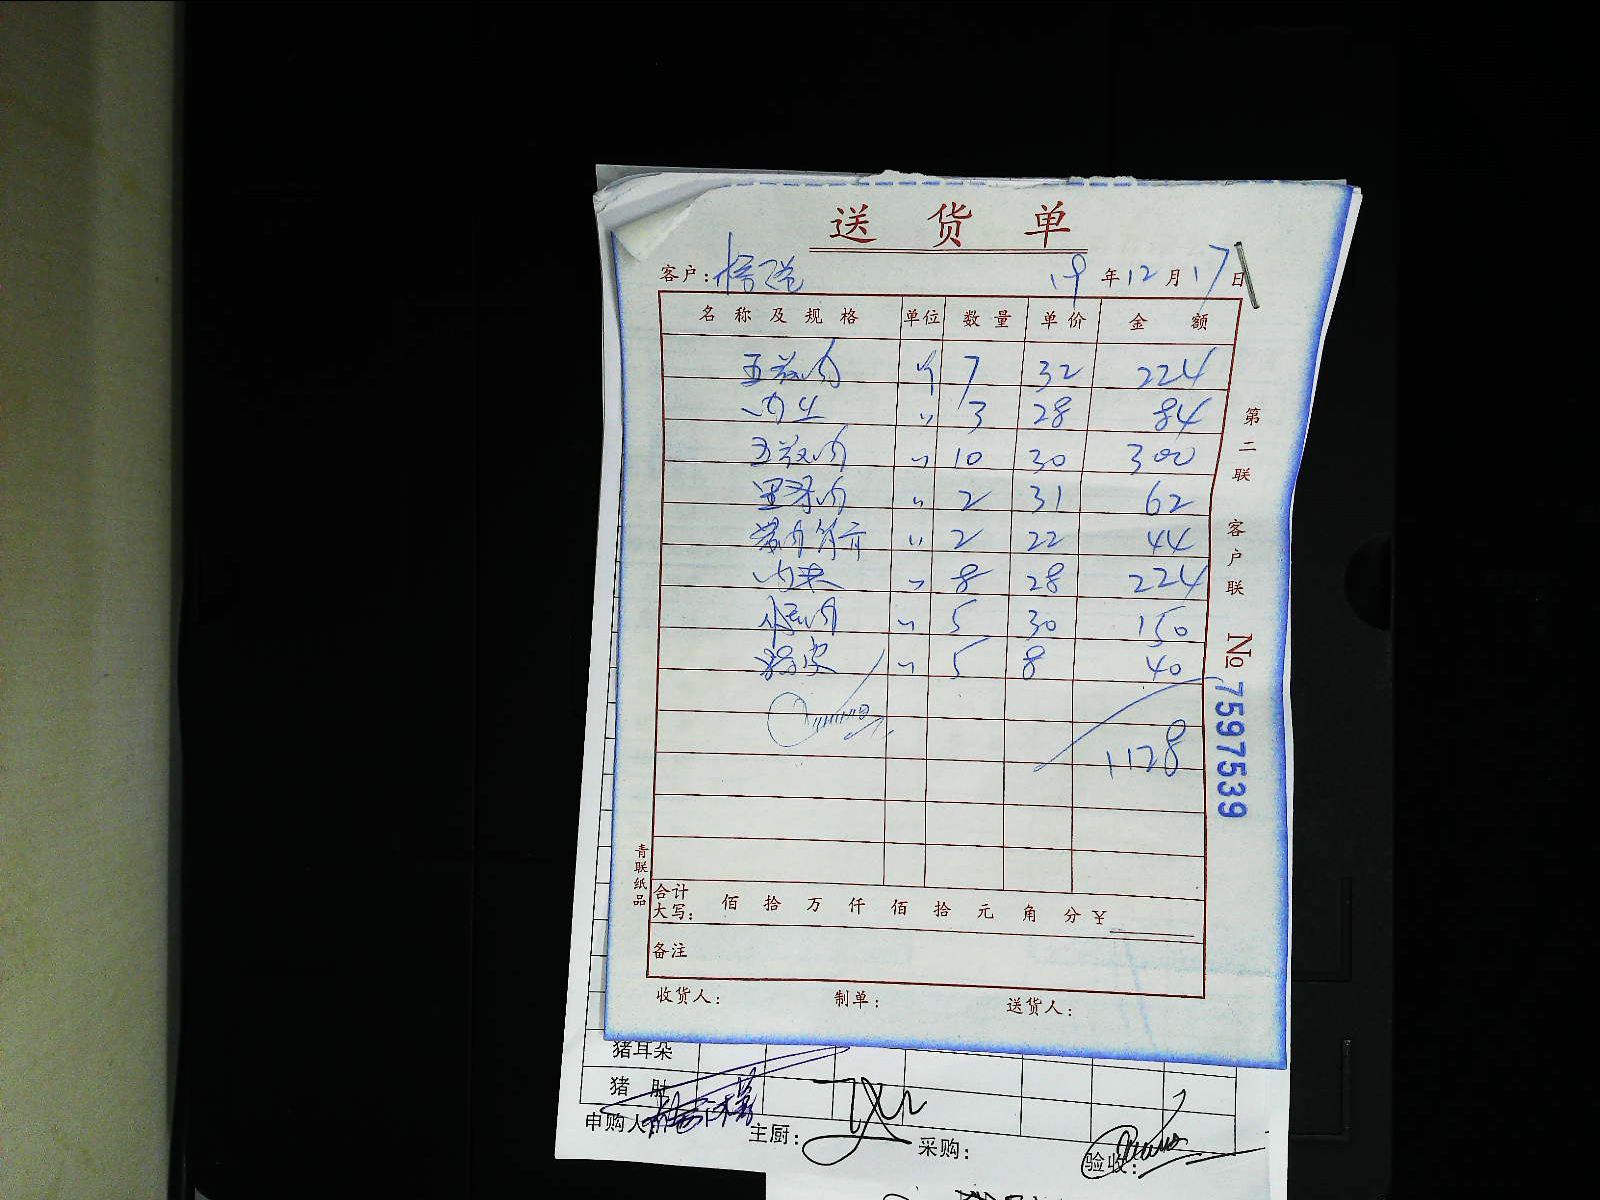 送 货 单
客户: 19 年 12 月 17 日
名 称 及 规 格 单位 数 量 单 价 金 额
五花肉 斤 7 32 224
肉 〃 3 28 84
五花肉 〃 10 30 300
里脊肉 〃 2 31 62
〃 2 22 44
肉 〃 8 28 224
肉 〃 5 30 150
猪皮 〃 5 8 40
1128
合计
大写: 佰 拾 万 仟 佰 拾 元 角 分 ¥
备注
收货人: 制单: 送货人:
第二联 客户联 No 7597539
青联纸品
猪耳朵
猪 肚
申购人 主厨: 采购: 验收: